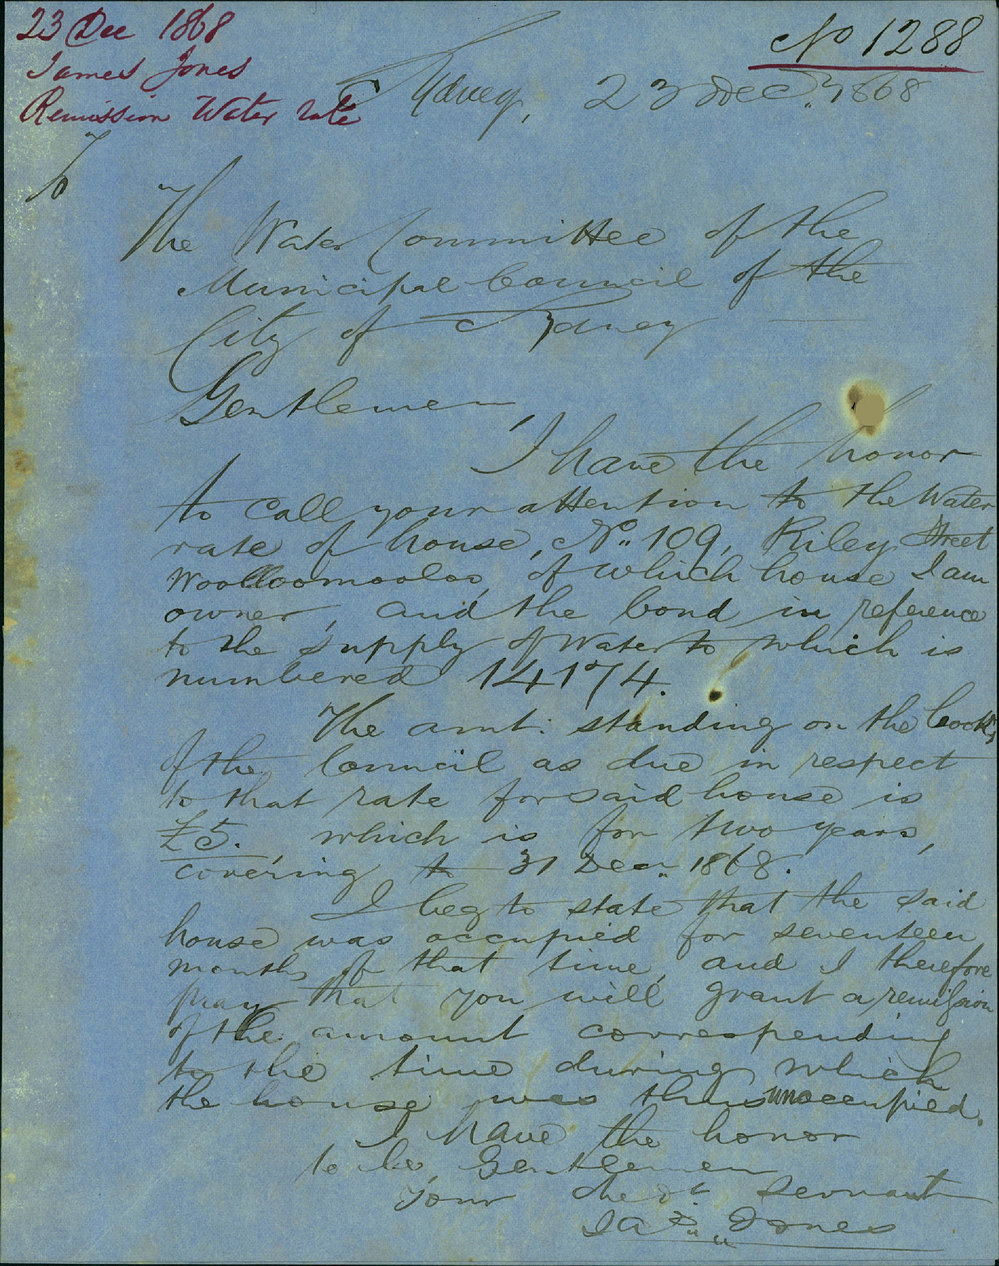 23 Dec 1868
James Jones
Remission Water rate
No 1288
Sydney, 23 Dec. 1868
To
The Water Committee of the
Municipal Council of the
City of Sydney
Gentlemen,
I have the honor
to call your attention to the Water
rate of house, No. 109, Riley Street
Woolloomooloo, of which house I am
owner, and the bond in reference
to the supply of Water to which is
numbered 14174.
The amt. standing on the books
of the Council as due in respect
to that rate for said house is
£5., which is for two years,
covering to 31 Dec. 1868.
I beg to state that the said
house was occupied for seventeen
months of that time, and I therefore
pray that you will grant a remission
of the amount corresponding
to the time during which
the house was thus unoccupied.
I have the honor
to be, Gentlemen
Your obedt. servant
Jas. Jones